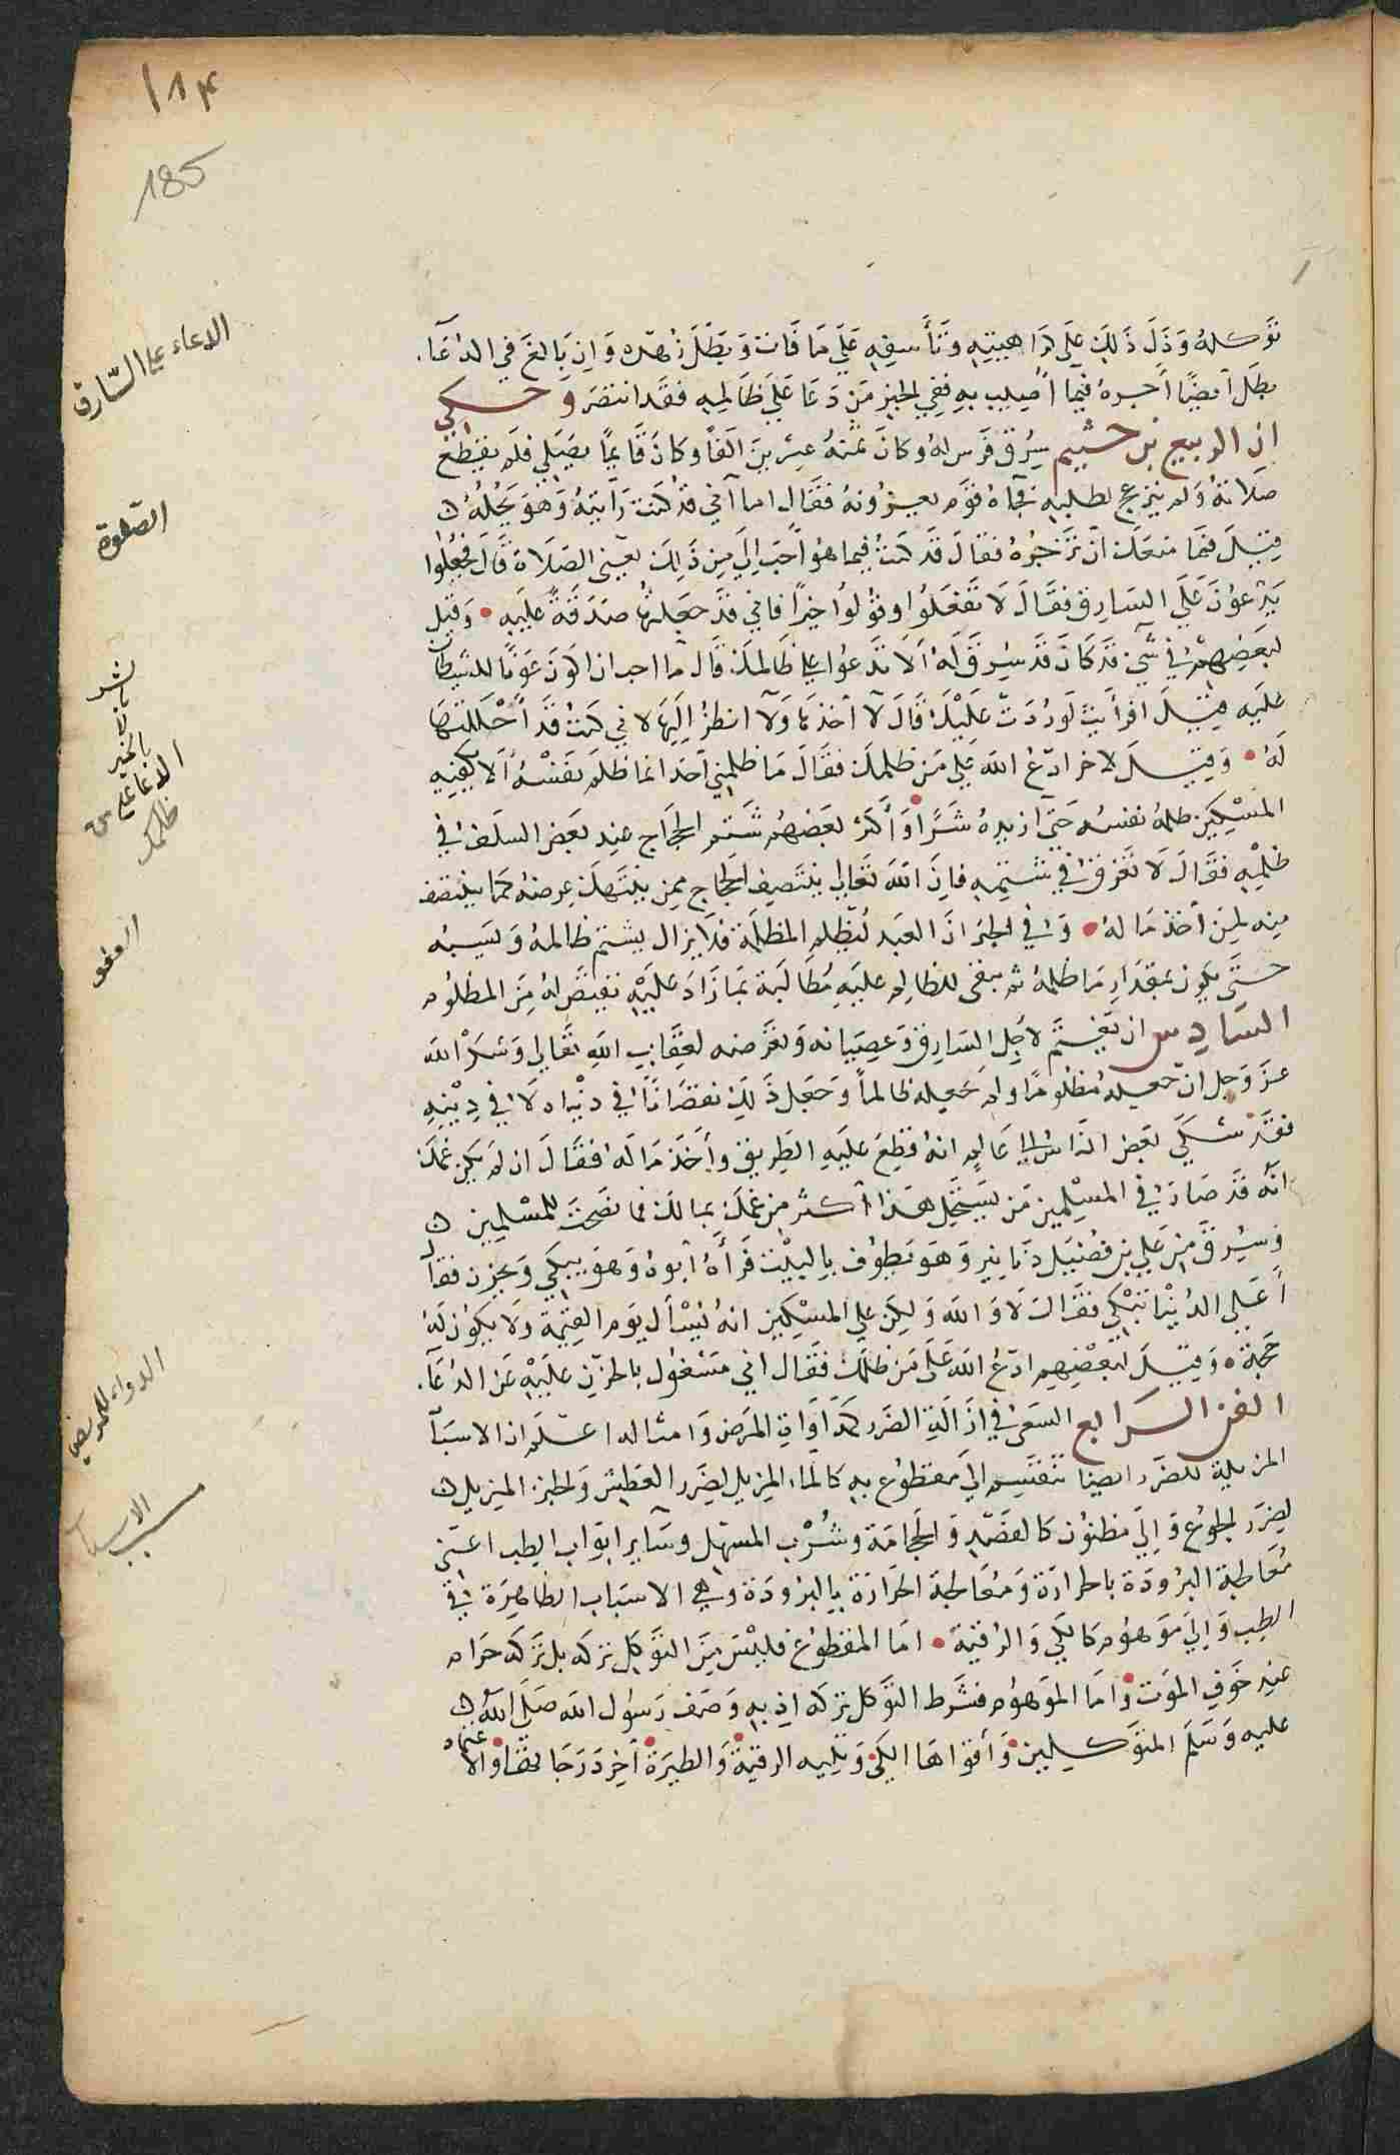 ١٨٤
185
توكله ودل ذلك على كراهيته وتأسفه على ما فات وبطل زهده وان بالغ في الدعاء
بطل ايضا اجره فيما اصيب به ففي الخبر من دعا على ظالمه فقد انتصر وحكي
ان الربيع بن خثيم سرق فرس له وكان ثمنه عشرين الفا وكان قايما يصلي فلم يقطع
صلاته ولم ينزعج لطلبه فجاه قوم يعزونه فقال اما اني قد كنت رايته وهو يحله
قيل فما منعك ان تزجره فقال قد كنت فيما هو احب الي من ذلك يعني الصلاة قال فجعلوا
يدعون على السارق فقال لا تفعلوا وقولوا خيرا فاني قد جعلتها صدقة عليه • وقيل
لبعضهم في شي قد كان قد سرق له الا تدعوا على ظالمك قال ما احب ان اكون عونا للشيطان
عليه قيل افرأيت لو ردت عليك قال لا آخذها ولا انظر اليها لاني كنت قد احللتها
له • وقيل لاخر ادع الله على من ظلمك فقال ما ظلمني احد انما ظلم نفسه الا يكفيه
المسكين ظلمه نفسه حتى ازيده شرا واكثر بعضهم شتم الحجاج عند بعض السلف في
ظلمه فقال لا تغرق في شتمه فان الله تعالى ينتصف للحجاج ممن ينتهك عرضه كما ينتصف
منه لمن اخذ ماله • وفي الخبر ان العبد ليظلم المظلمة فلا يزال يشتم ظالمه ويسبه
حتى يكون بمقدار ما ظلمه ثم يبقى للظالم عليه مطالبة بما زاد عليه يقتص له من المظلوم
السادس ان يغتم لاجل السارق وعصيانه وتعرضه لعقاب الله تعالى وشكر الله
عز وجل ان جعله مظلوما ولم يجعله ظالما وجعل ذلك نقصانا في دنياه لا في دينه
فقد شكى بعض الناس الى عالم انه قطع عليه الطريق واخذ ماله فقال ان لم يكن غمك
انه قد صار في المسلمين من يستحل هذا اكثر من غمك بمالك فما نصحت للمسلمين
وسرق من علي بن فضيل دنانير وهو يطوف بالبيت فرأه ابوه وهو يبكي ويحزن فقال
أعلى الدنيا تبكي فقال لا والله ولكن على المسكين انه يسأل يوم القيمة ولا يكون له
حجة • وقيل لبعضهم ادع الله على من ظلمك فقال اني مشغول بالحزن عليه عن الدعاء
الفن الرابع السعي في ازالة الضرر كمداواة المرض وامثاله اعلم ان الاسباب
المزيلة للضرر ايضا تنقسم الى مقطوع به كالماء المزيل لضرر العطش والخبز المزيل
لضرر الجوع والى مظنون كالفصد والحجامة وشرب المسهل وساير ابواب الطب اعني
معالجة البرودة بالحرارة ومعالجة الحرارة بالبرودة وهي الاسباب الظاهرة في
الطب والى موهوم كالكي والرقية • اما المقطوع فليس من التوكل تركه بل تركه حرام
عند خوف الموت واما الموهوم فشرط التوكل تركه اذ به وصف رسول الله صلى الله
عليه وسلم المتوكلين واقواها الكي ويليه الرقية والطيرة آخر درجاتها والاعتماد
الدعاء على السارق
الصلوة
بالشر
لا
بالخير
الدعا على من
ظلمك
العفو
الدواء للمريض
الاسباب